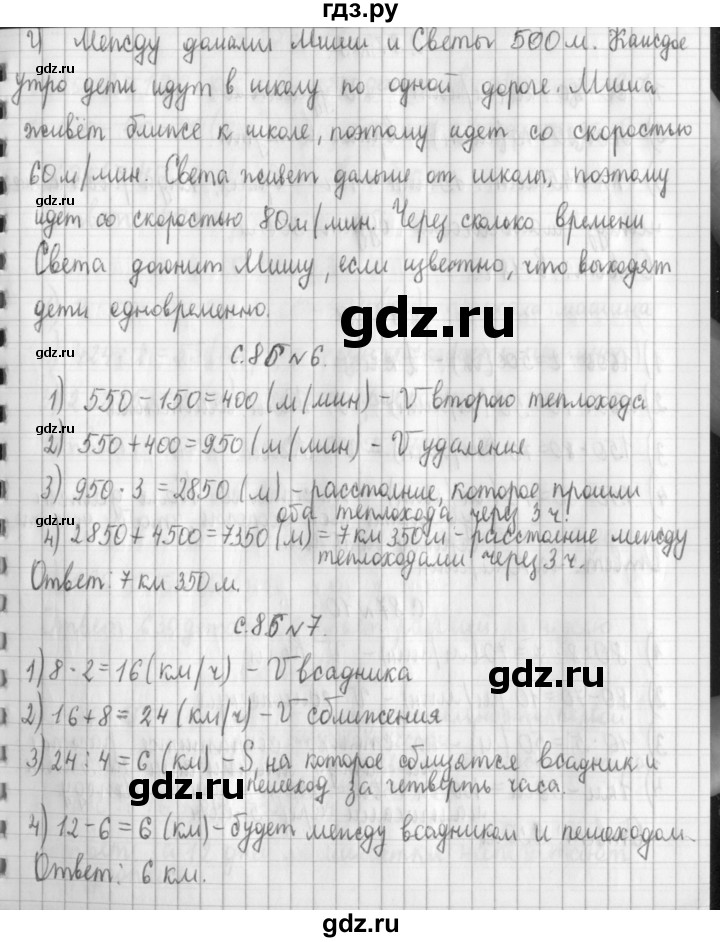 гдз.ру
2) Между домами Миши и Светы 500 м. Каждое
утро дети идут в школу по одной дороге. Миша
живёт ближе к школе, поэтому идет со скоростью
60 м/мин. Света живет дальше от школы, поэтому
идет со скоростью 80 м/мин. Через сколько времени
Света догонит Мишу, если известно, что выходят
дети одновременно.
с. 85 № 6.
1) 550 - 150 = 400 (м/мин) - V второго теплохода
2) 550 + 400 = 950 (м/мин) - V удаление
3) 950 · 3 = 2850 (м) - расстояние, которое прошли
оба теплохода через 3 ч.
4) 2850 + 4500 = 7350 (м) = 7 км 350 м - расстояние между
теплоходами через 3 ч.
Ответ: 7 км 350 м.
с. 85 № 7.
1) 8 · 2 = 16 (км/ч) - V всадника
2) 16 + 8 = 24 (км/ч) - V сближения
3) 24 : 4 = 6 (км) - S, на которое сблизятся всадник и
пешеход за четверть часа.
4) 12 - 6 = 6 (км) - будет между всадником и пешеходом.
Ответ: 6 км.
gdz.ru
gdz.ru
gdz.ru
gdz.ru
gdz.ru
gdz.ru
gdz.ru
gdz.ru
gdz.ru
gdz.ru